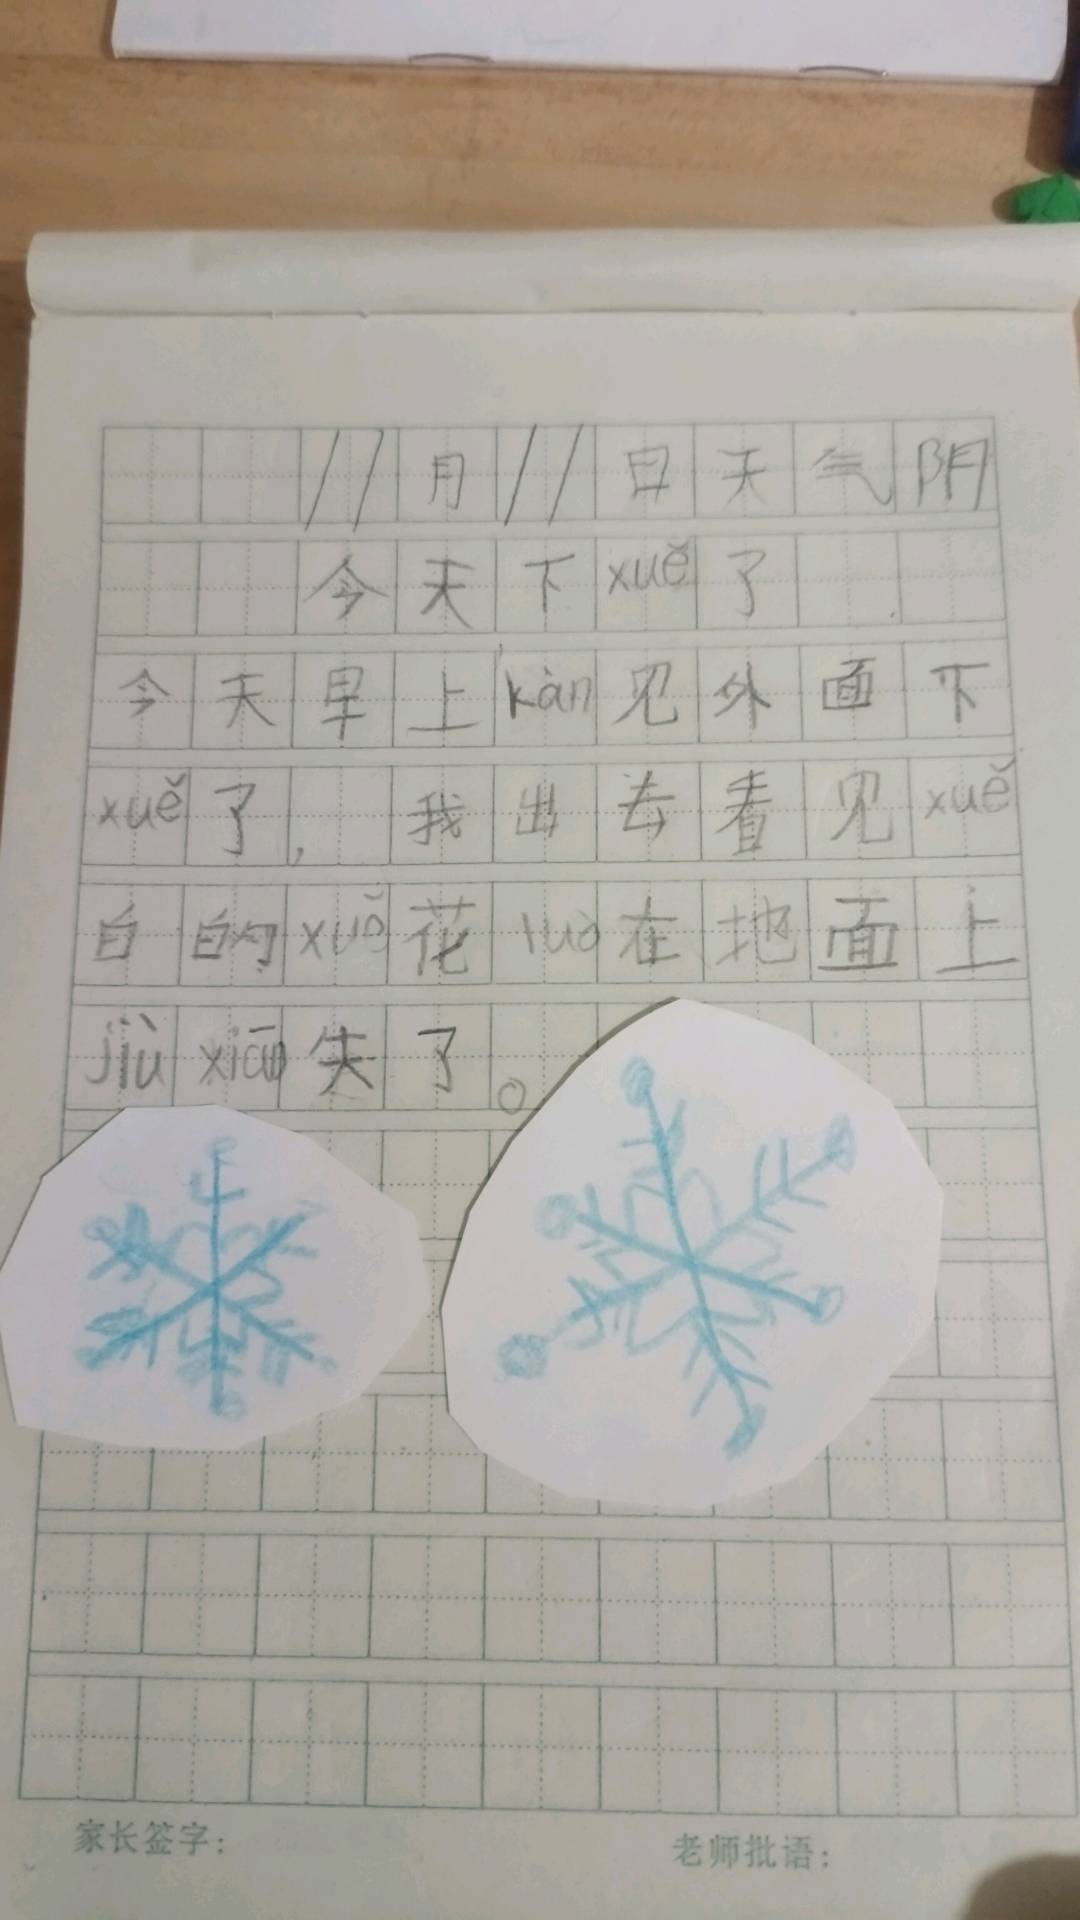 11月11日天气阴
今天下xuě了
今天早上kàn见外面下
xuě了，我出去看见xuě
白的xuě花luò在地面上
jiù xiāo失了。
家长签字：
老师批语：